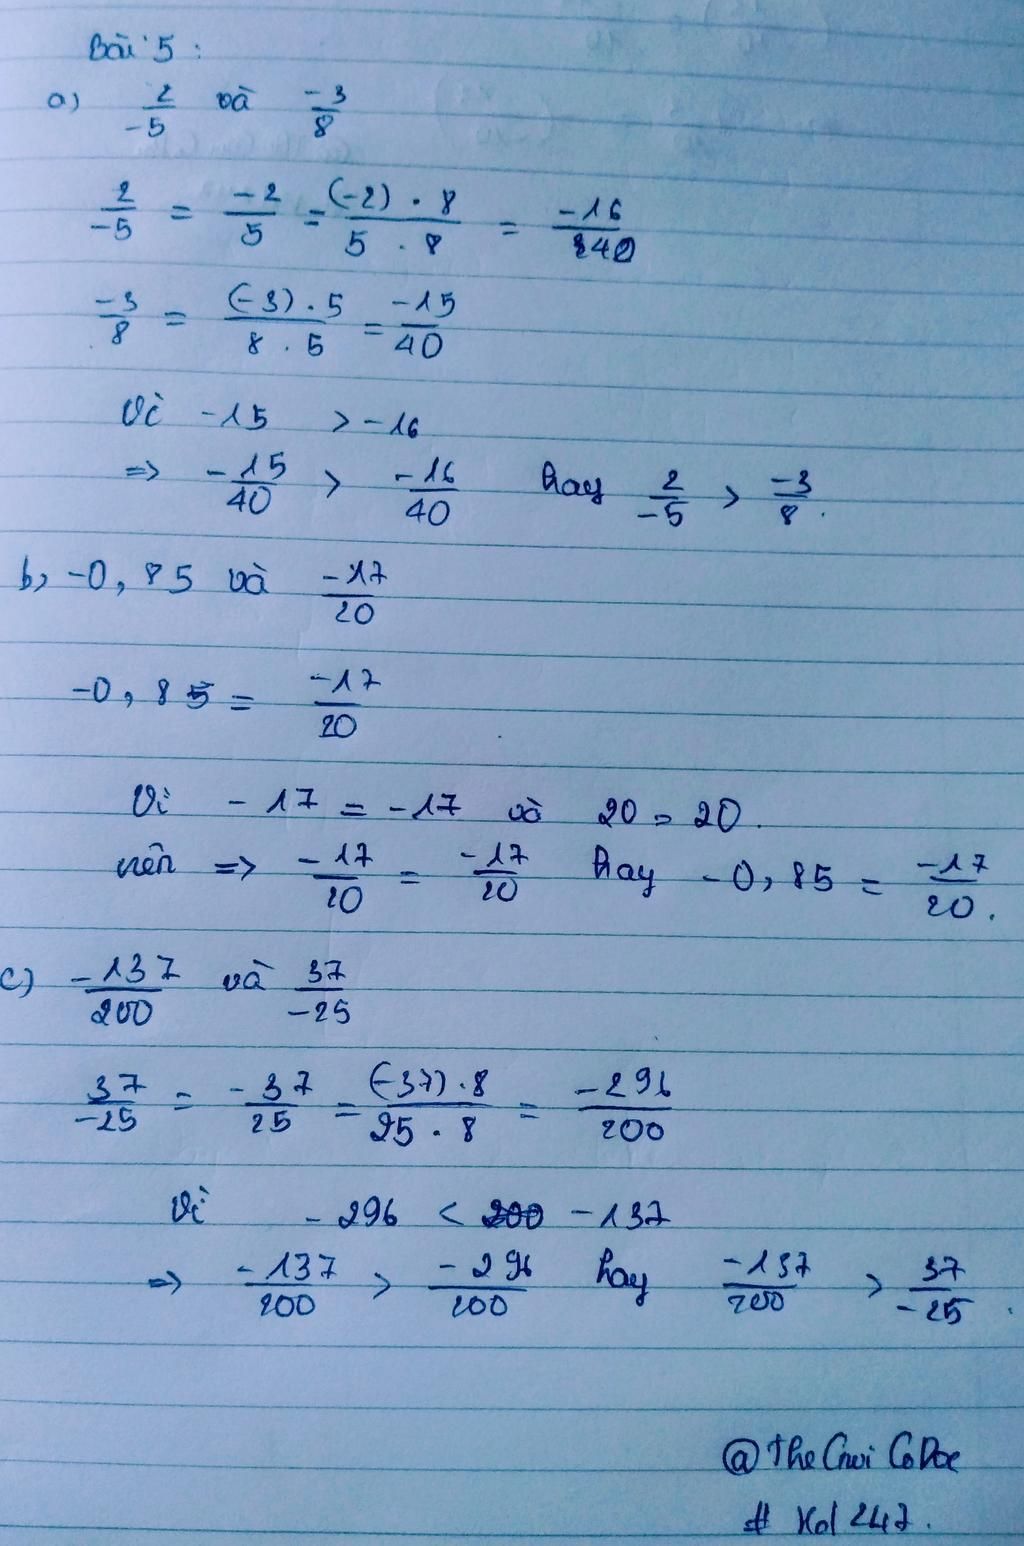 Bài 5 :
a) 2/-5 và -3/8
2/-5 = -2/5 = (-2) . 8 / 5 . 8 = -16/40
-3/8 = (-3) . 5 / 8 . 5 = -15/40
Vì -15 > -16
=> -15/40 > -16/40 hay 2/-5 > -3/8.
b, -0,85 và -17/20
-0,85 = -17/20
Vì -17 = -17 và 20 = 20.
nên => -17/20 = -17/20 hay -0,85 = -17/20.
c) -137/200 và 37/-25
37/-25 = -37/25 = (-37) . 8 / 25 . 8 = -296/200
Vì -296 < -137
=> -137/200 > -296/200 hay -137/200 > 37/-25.
# Hol 247.